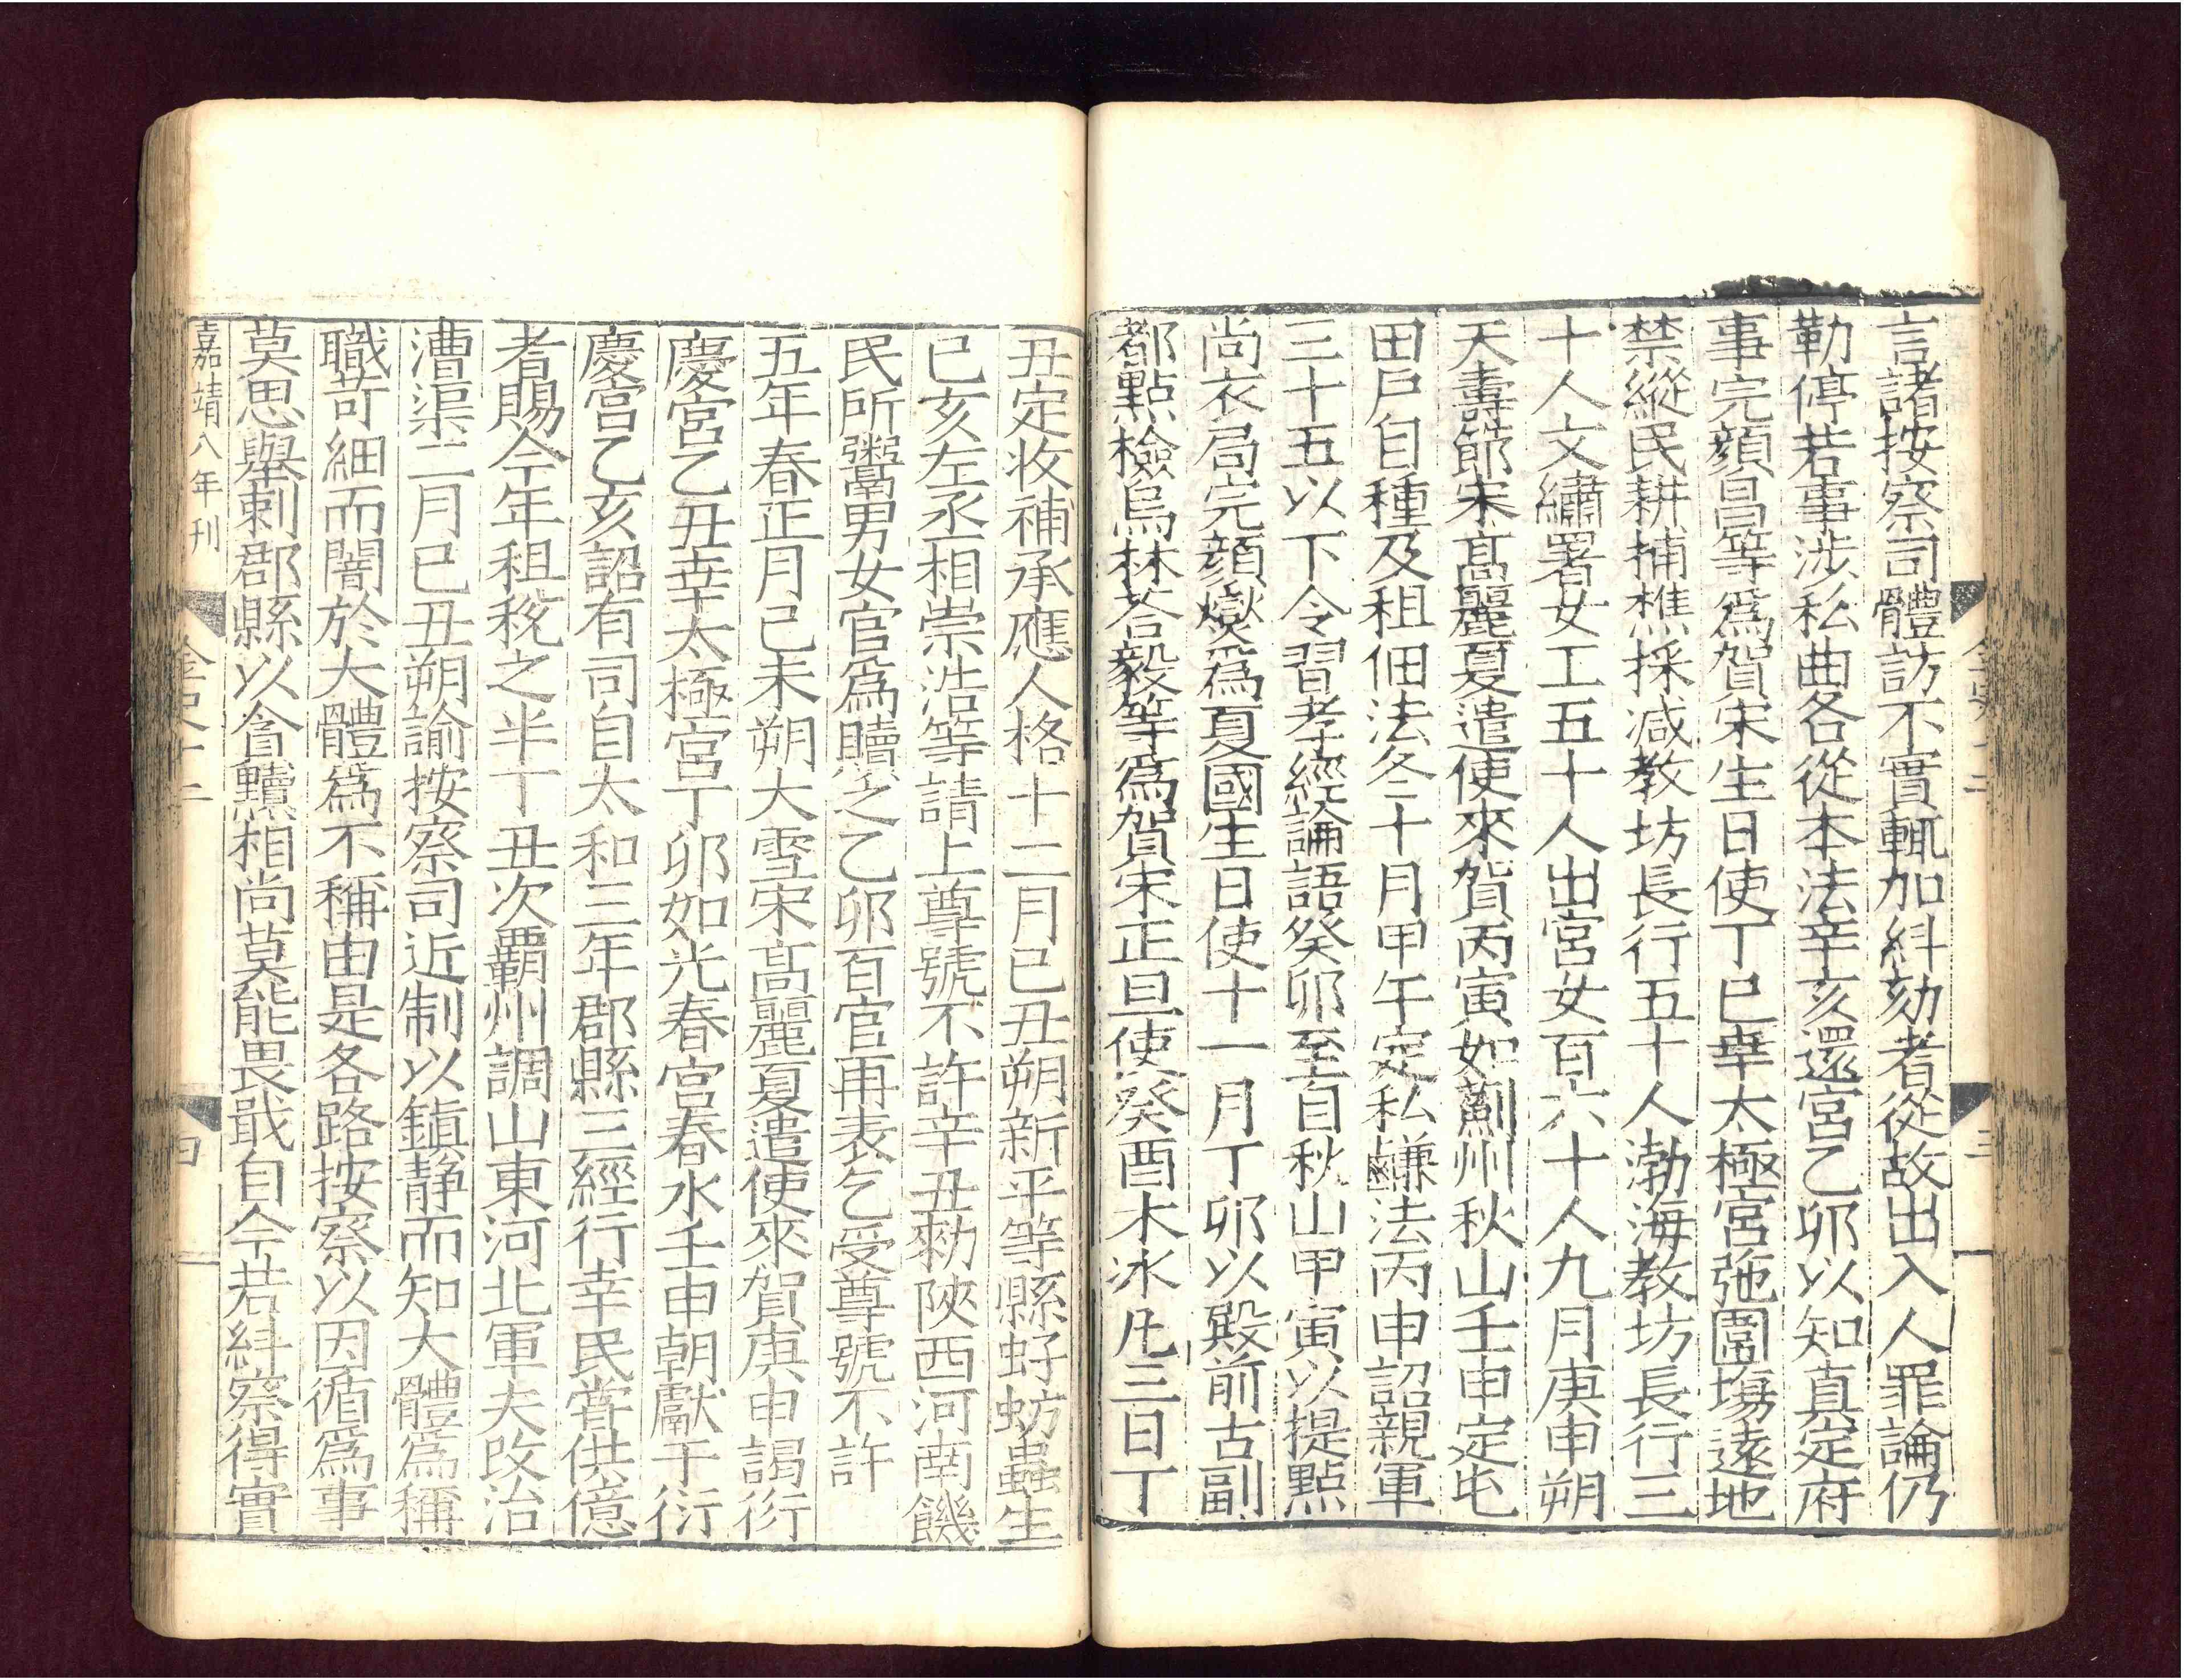 言諸按察司體訪不實輒加糾劾者從故出入人罪論仍
勒停若事涉私曲各從本法辛亥還宮乙卯以知真定府
事完顔昌等爲賀宋生日使丁巳幸太極宮弛圍塲遠地
禁縱民耕捕樵採減教坊長行五十人渤海教坊長行三
十人文繡署女工五十人出宮女百六十人九月庚申朔
天壽節宋髙麗夏遣使來賀丙寅如薊州秋山壬申定屯
田戸自種及租佃法冬十月甲午定私鹻法丙申詔親軍
三十五以下令習孝經論語癸卯至自秋山甲寅以提點
尚衣局完顔爕爲夏國生日使十一月丁卯以殿前右副
都點檢烏林荅毅等爲賀宋正旦使癸酉木冰凡三日丁
丑定收補承應人格十二月己丑朔新平等縣虸蚄蟲生
己亥左丞相崇浩等請上尊號不許辛丑勑陜西河南饑
民所鬻男女官爲贖之乙卯百官再表乞受尊號不許
五年春正月己未朔大雪宋髙麗夏遣使來賀庚申謁衍
慶宮乙丑幸太極宮丁卯如光春宮春水壬申朝獻于衍
慶宮乙亥詔有司自太和三年郡縣三經行幸民甞供億
者賜今年租稅之半丁丑次霸州調山東河北軍夫改治
漕渠二月己丑朔諭按察司近制以鎮静而知大體爲稱
職苛細而闇於大體爲不稱由是各路按察以因循爲事
莫思舉刺郡縣以貪黷相尚莫能畏戢自今若糾察得實
嘉靖八年刊
金史十二
四